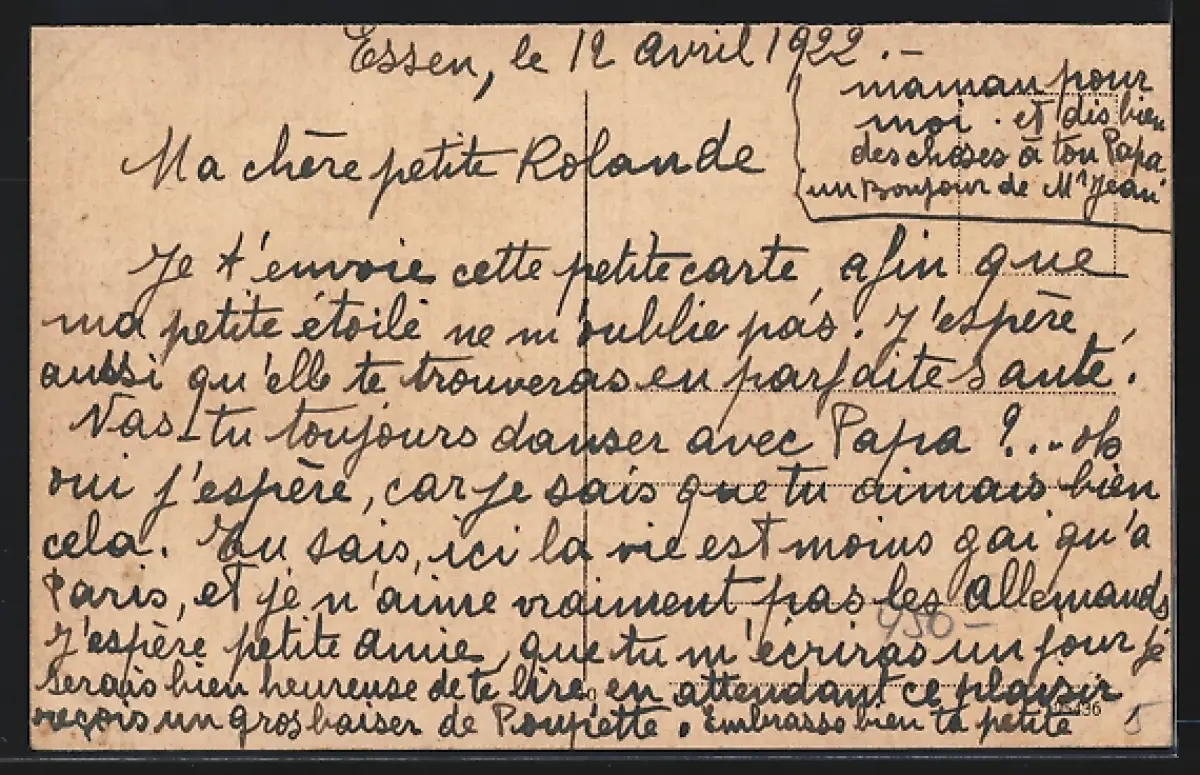 Essen, le 12 avril 1922.-
Ma chère petite Rolande
Je t'envoie cette petite carte afin que
ma petite étoile ne m'oublie pas. J'espère
aussi qu'elle te trouveras en parfaite santé.
Vas-tu toujours danser avec Papa ?... oh
oui j'espère, car je sais que tu aimais bien
cela. Tu sais, ici la vie est moins gai qu'a
Paris, et je n'aime vraiment pas les Allemands
J'espère petite amie, que tu m'écriras un jour je
serais bien heureuse de te lire, en attendant ce plaisir
reçois un gros baiser de Poupette. Embrasse bien ta petite
maman pour
moi. et dis bien
des choses à ton Papa
un Bonjour de Mr Jean
450-
5